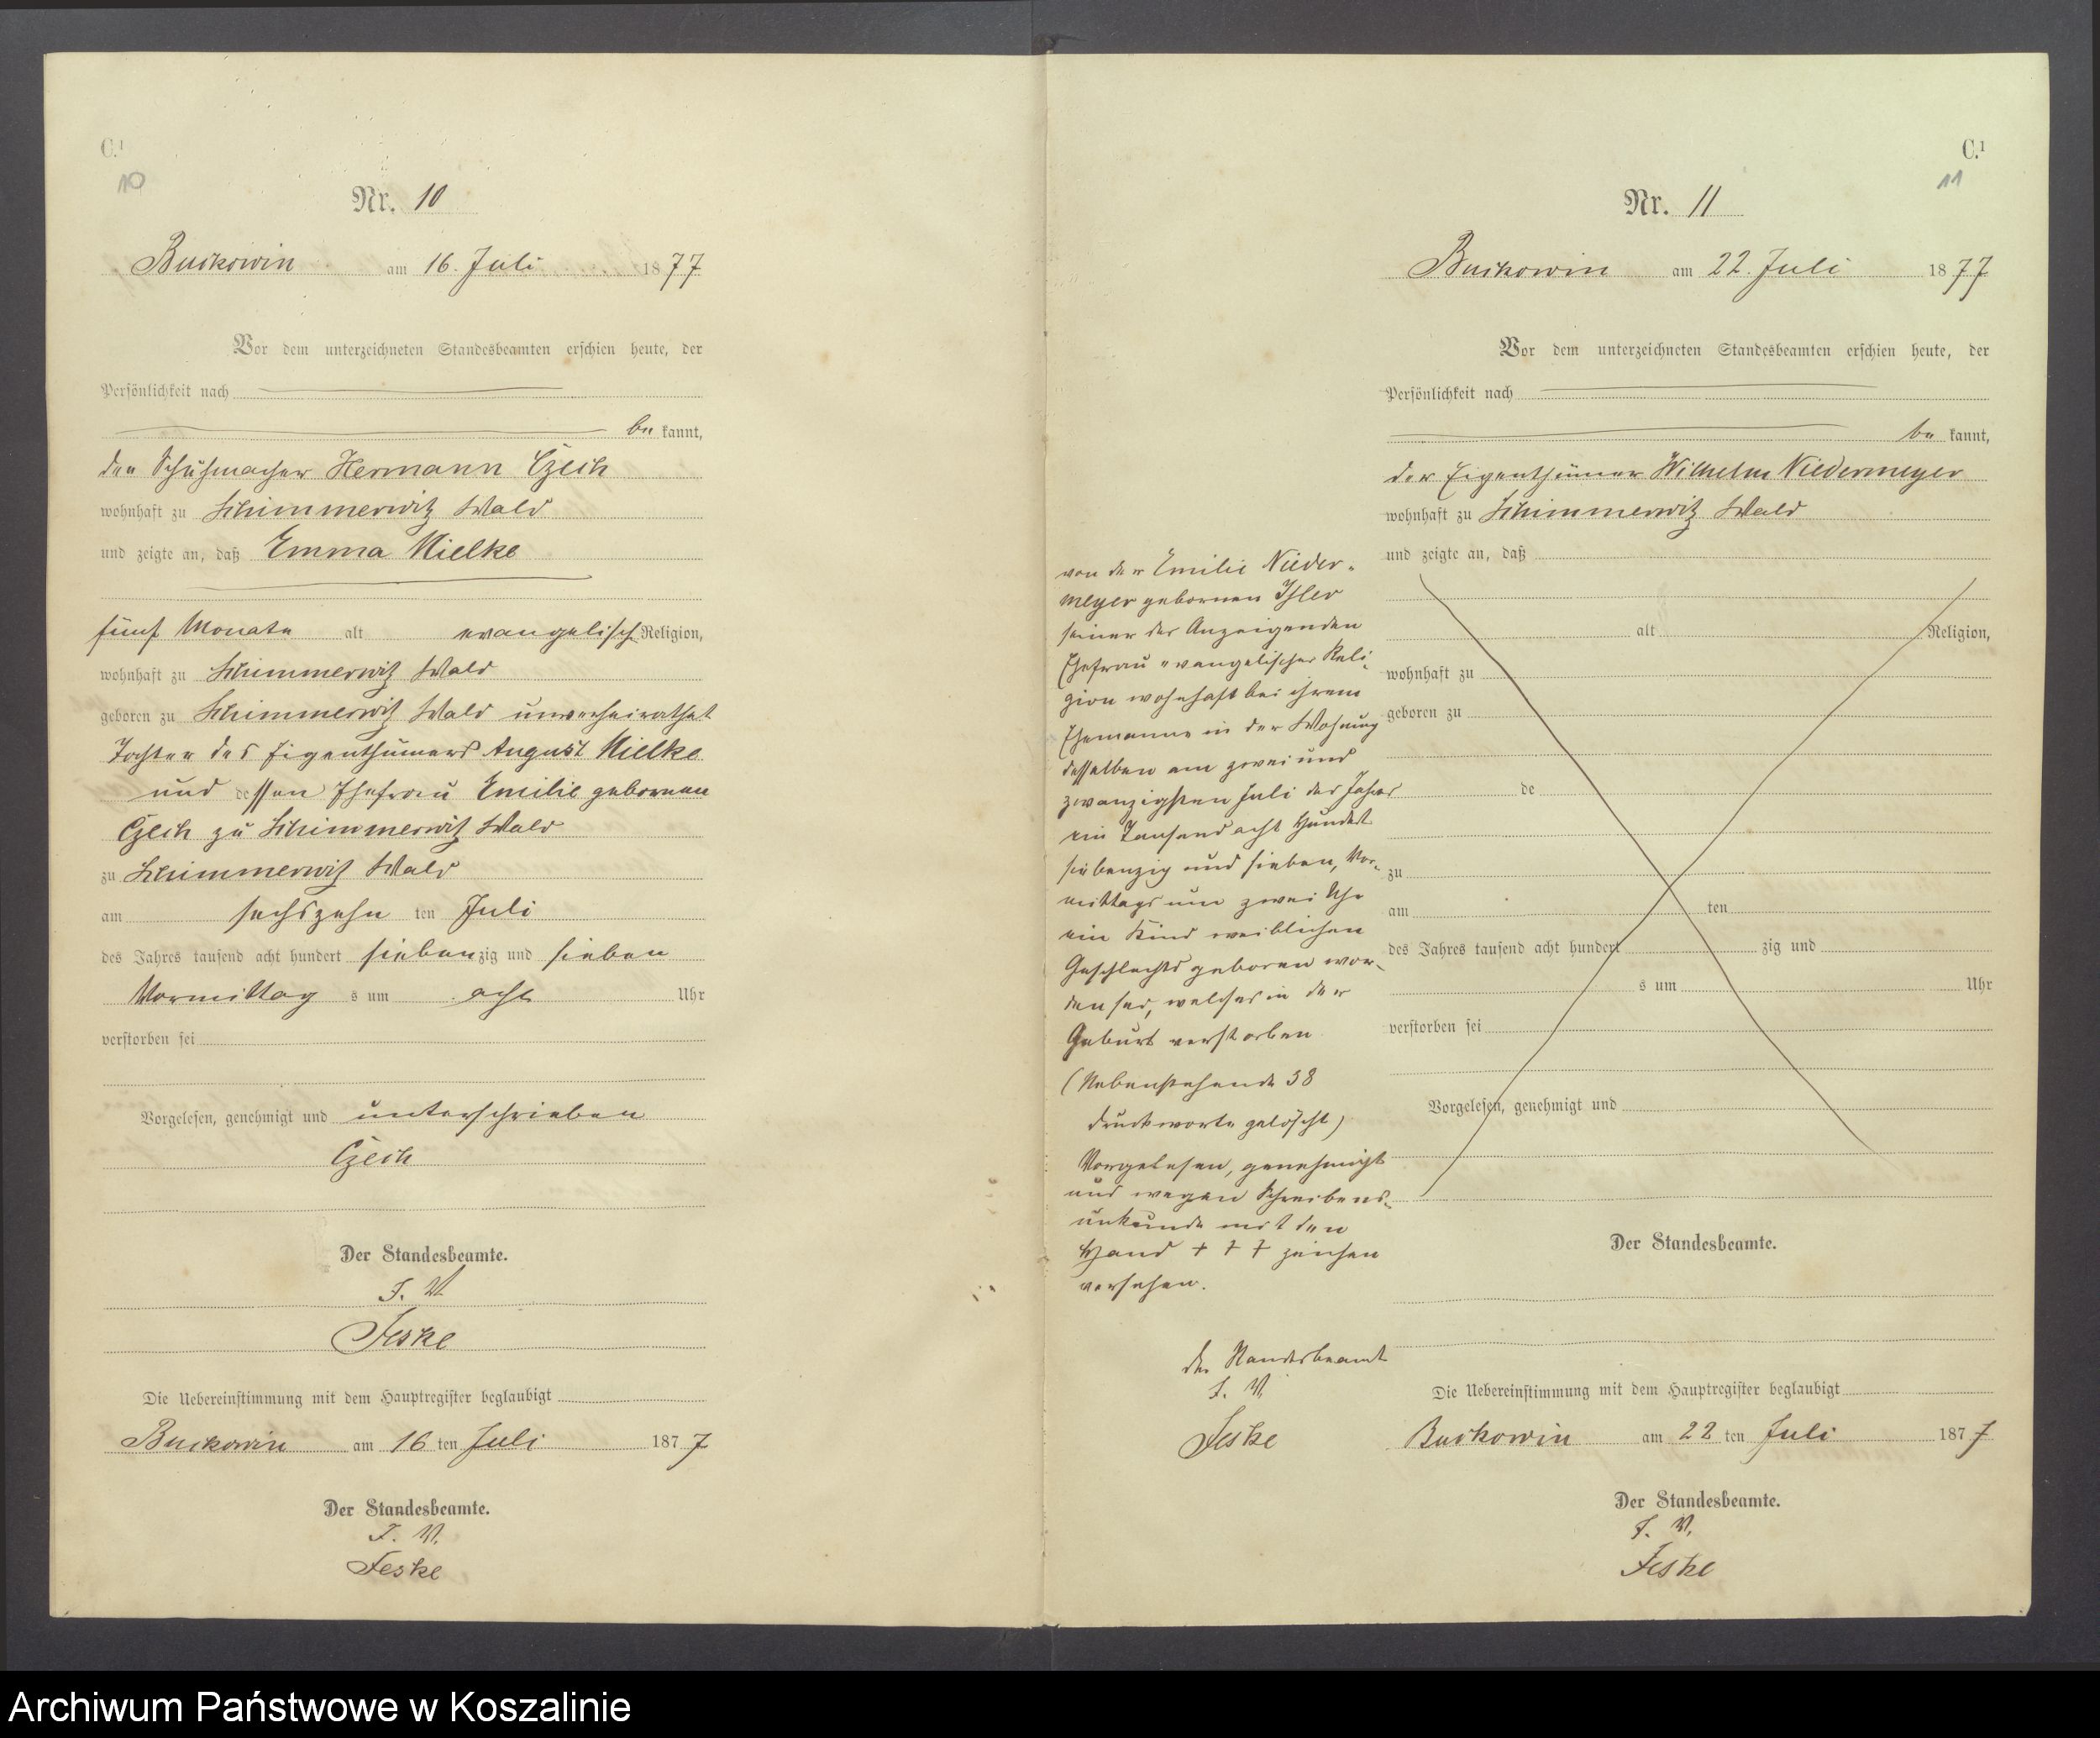 C.¹
10
Nr. 10
Buckowin am 16. Juli 1877
Vor dem unterzeichneten Standesbeamten erschien heute, der
Persönlichkeit nach
be kannt,
der Schuhmacher Hermann Czech
wohnhaft zu Schimmerwitz Wald
und zeigte an, daß Emma Mielke
fünf Monate alt evangelisch Religion,
wohnhaft zu Schimmerwitz Wald
geboren zu Schimmerwitz Wald unverheirathet
Tochter des Eigenthümers August Mielke
und dessen Ehefrau Emilie geborenen
Czech zu Schimmerwitz Wald
zu Schimmerwitz Wald
am sechszehn ten Juli
des Jahres tausend acht hundert siebenzig und sieben
Vormittag s um acht Uhr
verstorben sei
Vorgelesen, genehmigt und unterschrieben
Czech
Der Standesbeamte.
J. V.
Feske
Die Uebereinstimmung mit dem Hauptregister beglaubigt
Buckowin am 16 ten Juli 1877
Der Standesbeamte.
J. V.
Feske
C.¹
11
Nr. 11
Buckowin am 22. Juli 1877
Vor dem unterzeichneten Standesbeamten erschien heute, der
Persönlichkeit nach
be kannt,
der Eigenthümer Wilhelm Niedermeyer
wohnhaft zu Schimmerwitz Wald
und zeigte an, daß
alt Religion,
wohnhaft zu
geboren zu
de
zu
am ten
des Jahres tausend acht hundert zig und
s um Uhr
verstorben sei
Vorgelesen, genehmigt und
von der Emilie Nieder-
meyer gebornen
seiner des Anzeigenden
Ehefrau evangelischer Reli-
gion wohnhaft bei ihrem
Ehemanne in der Wohnung
desselben am zwei und
zwanzigsten Juli des Jahres
ein Tausend acht Hundert
siebenzig und sieben, Vor-
mittags um zwei Uhr
ein Kind weiblichen
Geschlechts geboren wor-
den sei, welches in der
Geburt verstorben
(Nebenstehende 38
Druckworte gelöscht)
Vorgelesen, genehmigt
und wegen Schreibens-
unkunde mit den
Hand + + + zeichen
versehen.
der Standesbeamte
J. V.
Feske
Der Standesbeamte.
Die Uebereinstimmung mit dem Hauptregister beglaubigt
Buckowin am 22 ten Juli 1877
Der Standesbeamte.
J. V.
Feske
Archiwum Państwowe w Koszalinie